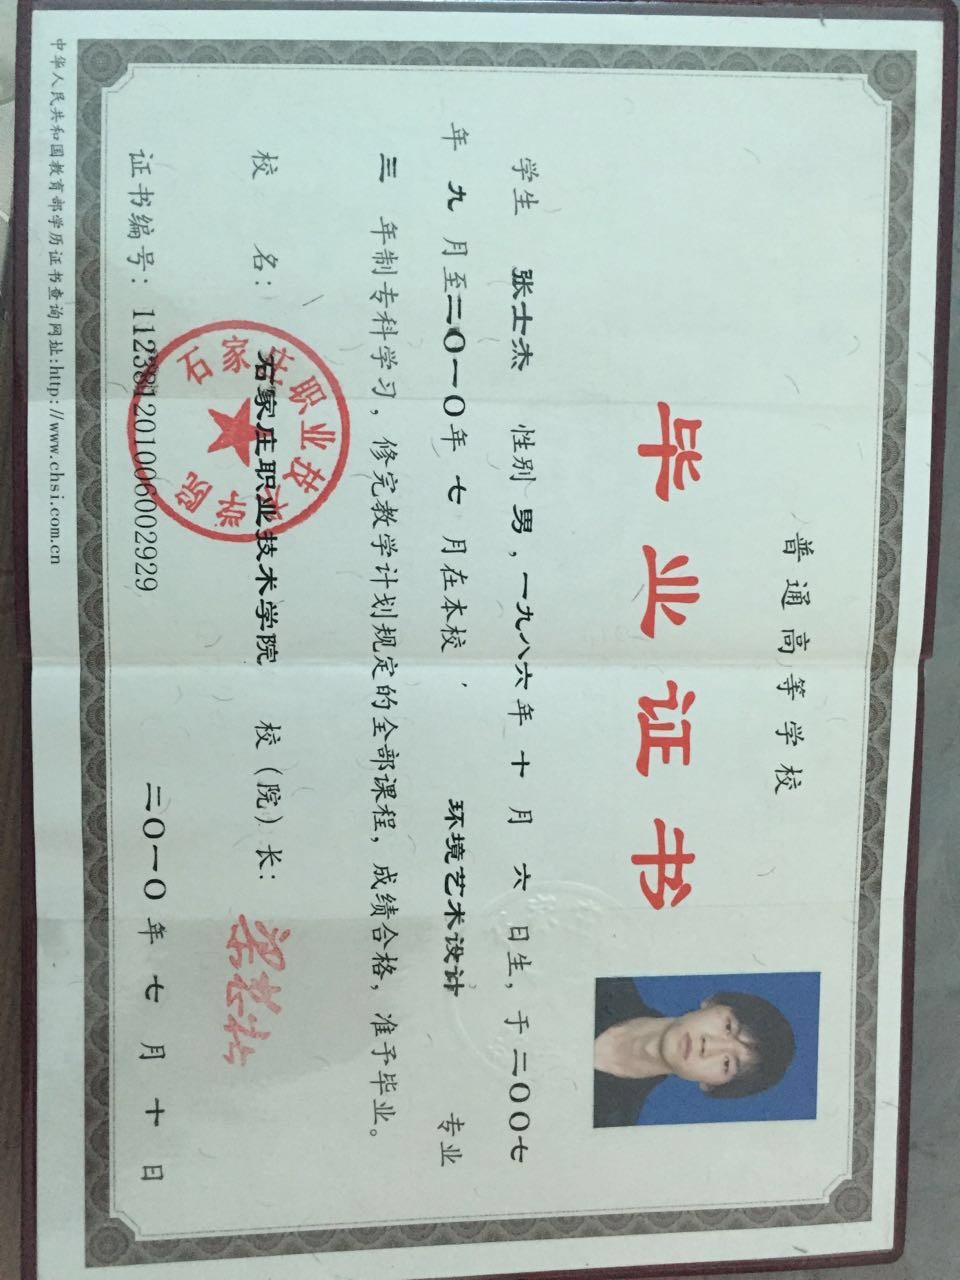 普通高等学校
毕业证书
学生 张士杰 性别 男，一九八六年 十 月 六 日生，于二〇〇七
年 九 月至二〇一〇年 七 月在本校 环境艺术设计 专业
三 年制专科学习，修完教学计划规定的全部课程，成绩合格，准予毕业。
校 名： 石家庄职业技术学院 校（院）长：
石家庄职业技术学院
证书编号：112381201006002929 二〇一〇年 七 月 十 日
中华人民共和国教育部学历证书查询网址:http://www.chsi.com.cn